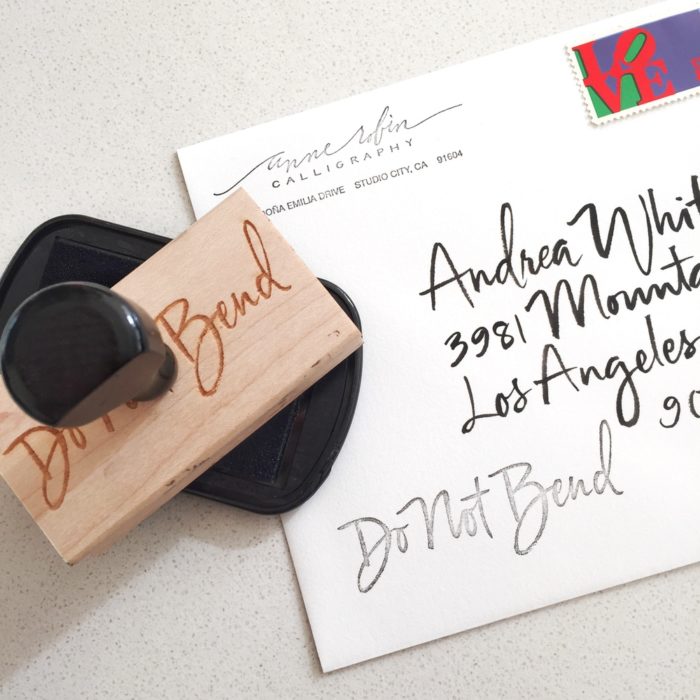 LOVE
anne robin
CALLIGRAPHY
EMILIA DRIVE STUDIO CITY, CA 91604
Andrea
3981
Los Angeles
Do Not Bend
Do Bend